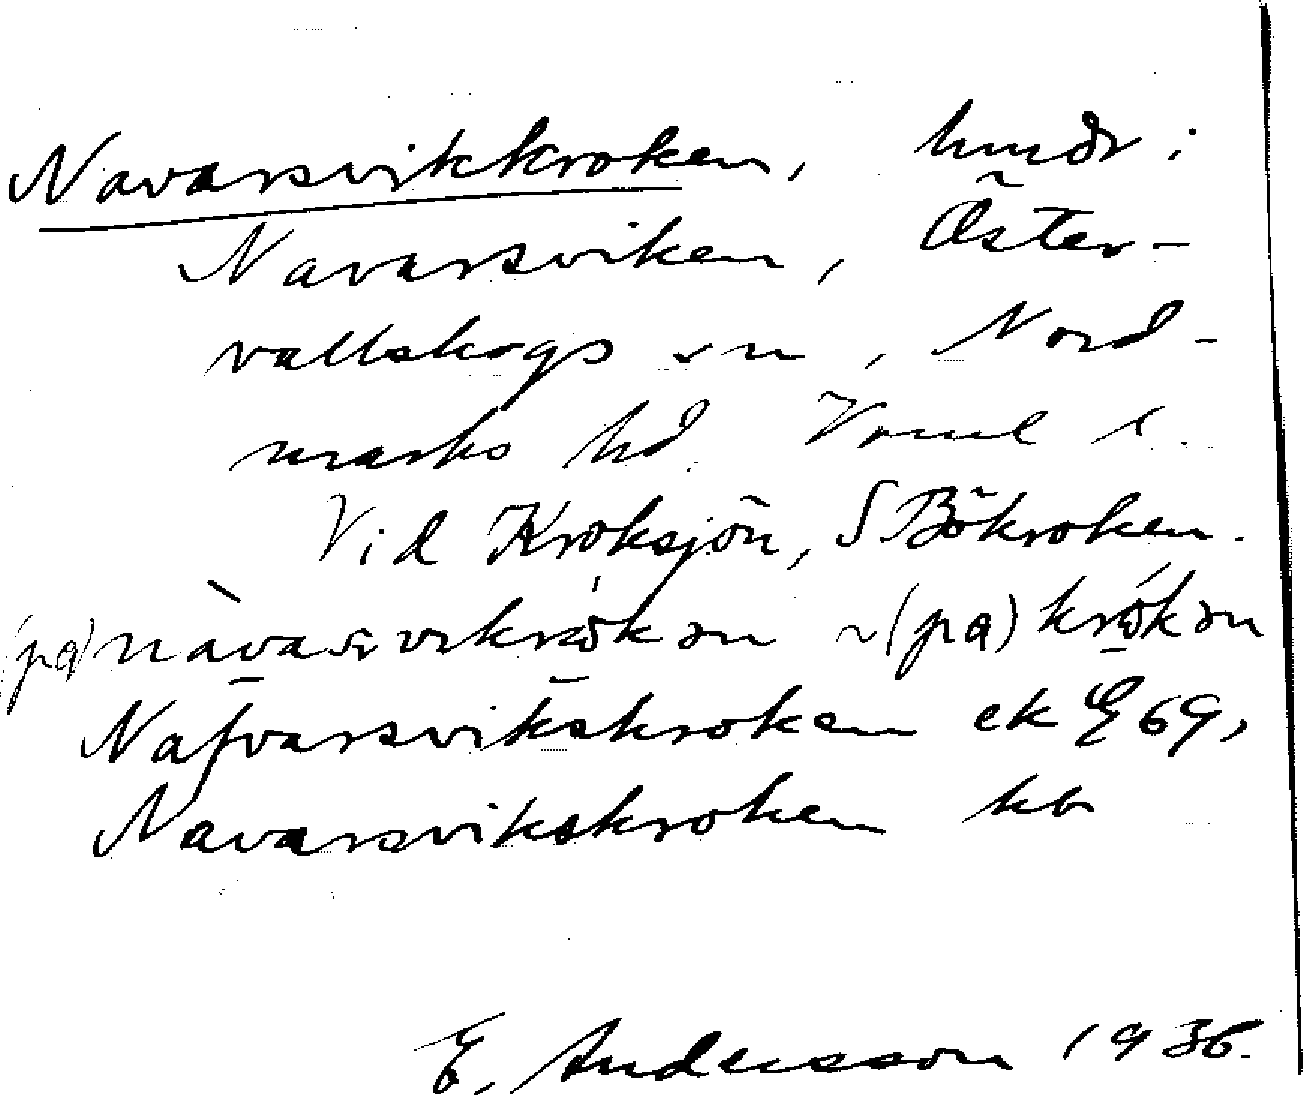 Navarsvikkroken, hmdr i
Navarsviken, Öster-
vallskogs sn, Nord-
marks hd. Vrml l.
Vid Kroksjön, S Bökroken.
(pa) nàvarsvikrókən ~ (pa) krókən
Nafvarsvikskroken ek E 69,
Navarsvikskroken kb
E. Andersson 1936.